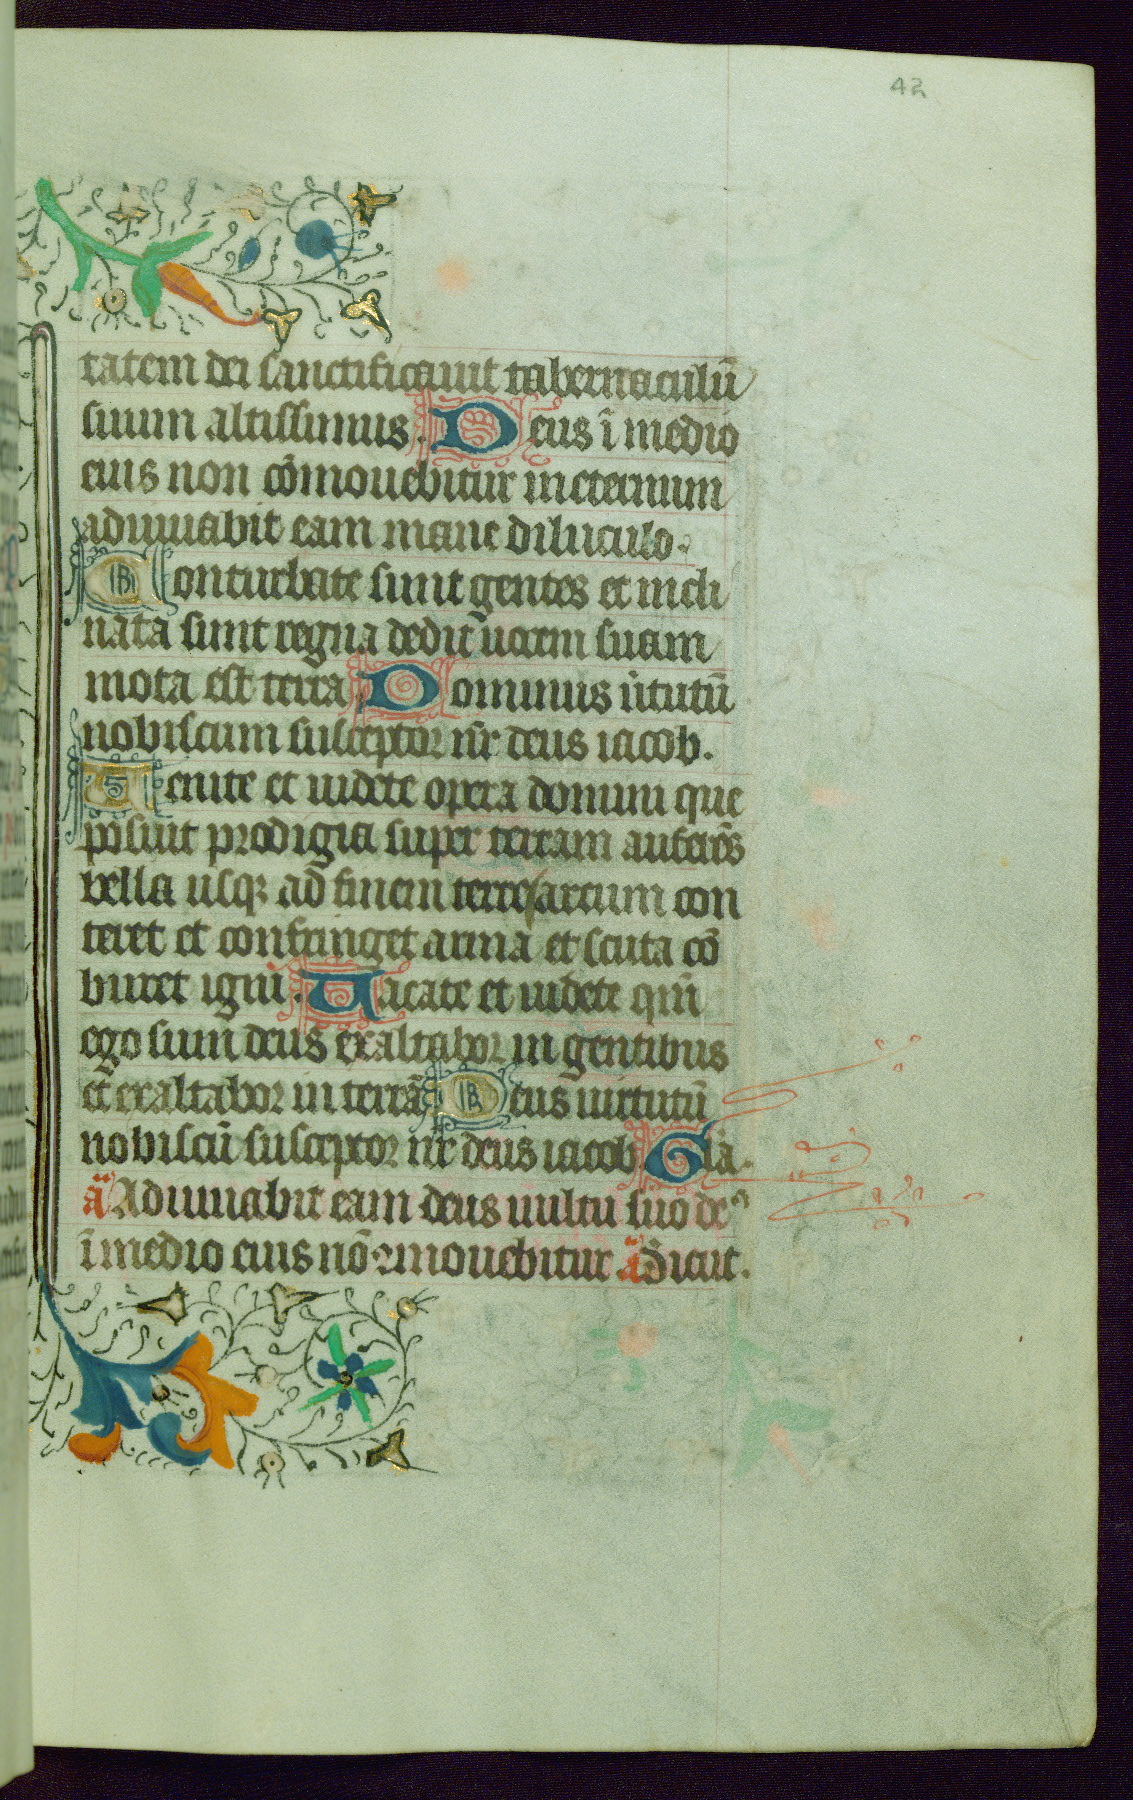 42
tatem dei sanctificauit tabernaculū
suum altissimus. Deus ī medio
eius non cōmouebitur in eternum
adiuuabit eam mane diluculo.
Conturbate sunt gentes et incli
nata sunt regna dedit uocem suam
mota est terra Dominus ũtutū
nobiscum susceptor nr̄ deus iacob.
Uenite et uidete opera domini que
posuit prodigia super terram auferēs
bella usqꝫ ad finem terre arcum con
teret et confringet arma et scuta cō
buret igni. Uacate et uidete qm̄
ego sum deus exaltabor in gentibus
et exaltabor in terrā Deus uirtutū
nobiscū susceptor nr̄ deus iacob Glā.
ā Adiuuabit eam deus uultu suo deꝰ
ī medio eius nō ꝯmouebitur ā Dicit.